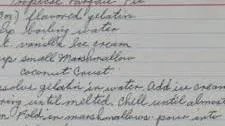 Tropical Parfait Pie
3oz) flavored gelatin
up boiling water
t. vanilla Ice cream
up small Marshmallow
coconut Crust
ssolve gelatin in water. Add ice cream
ring until melted. Chill until almost
m. Fold in marshmallows. pour into